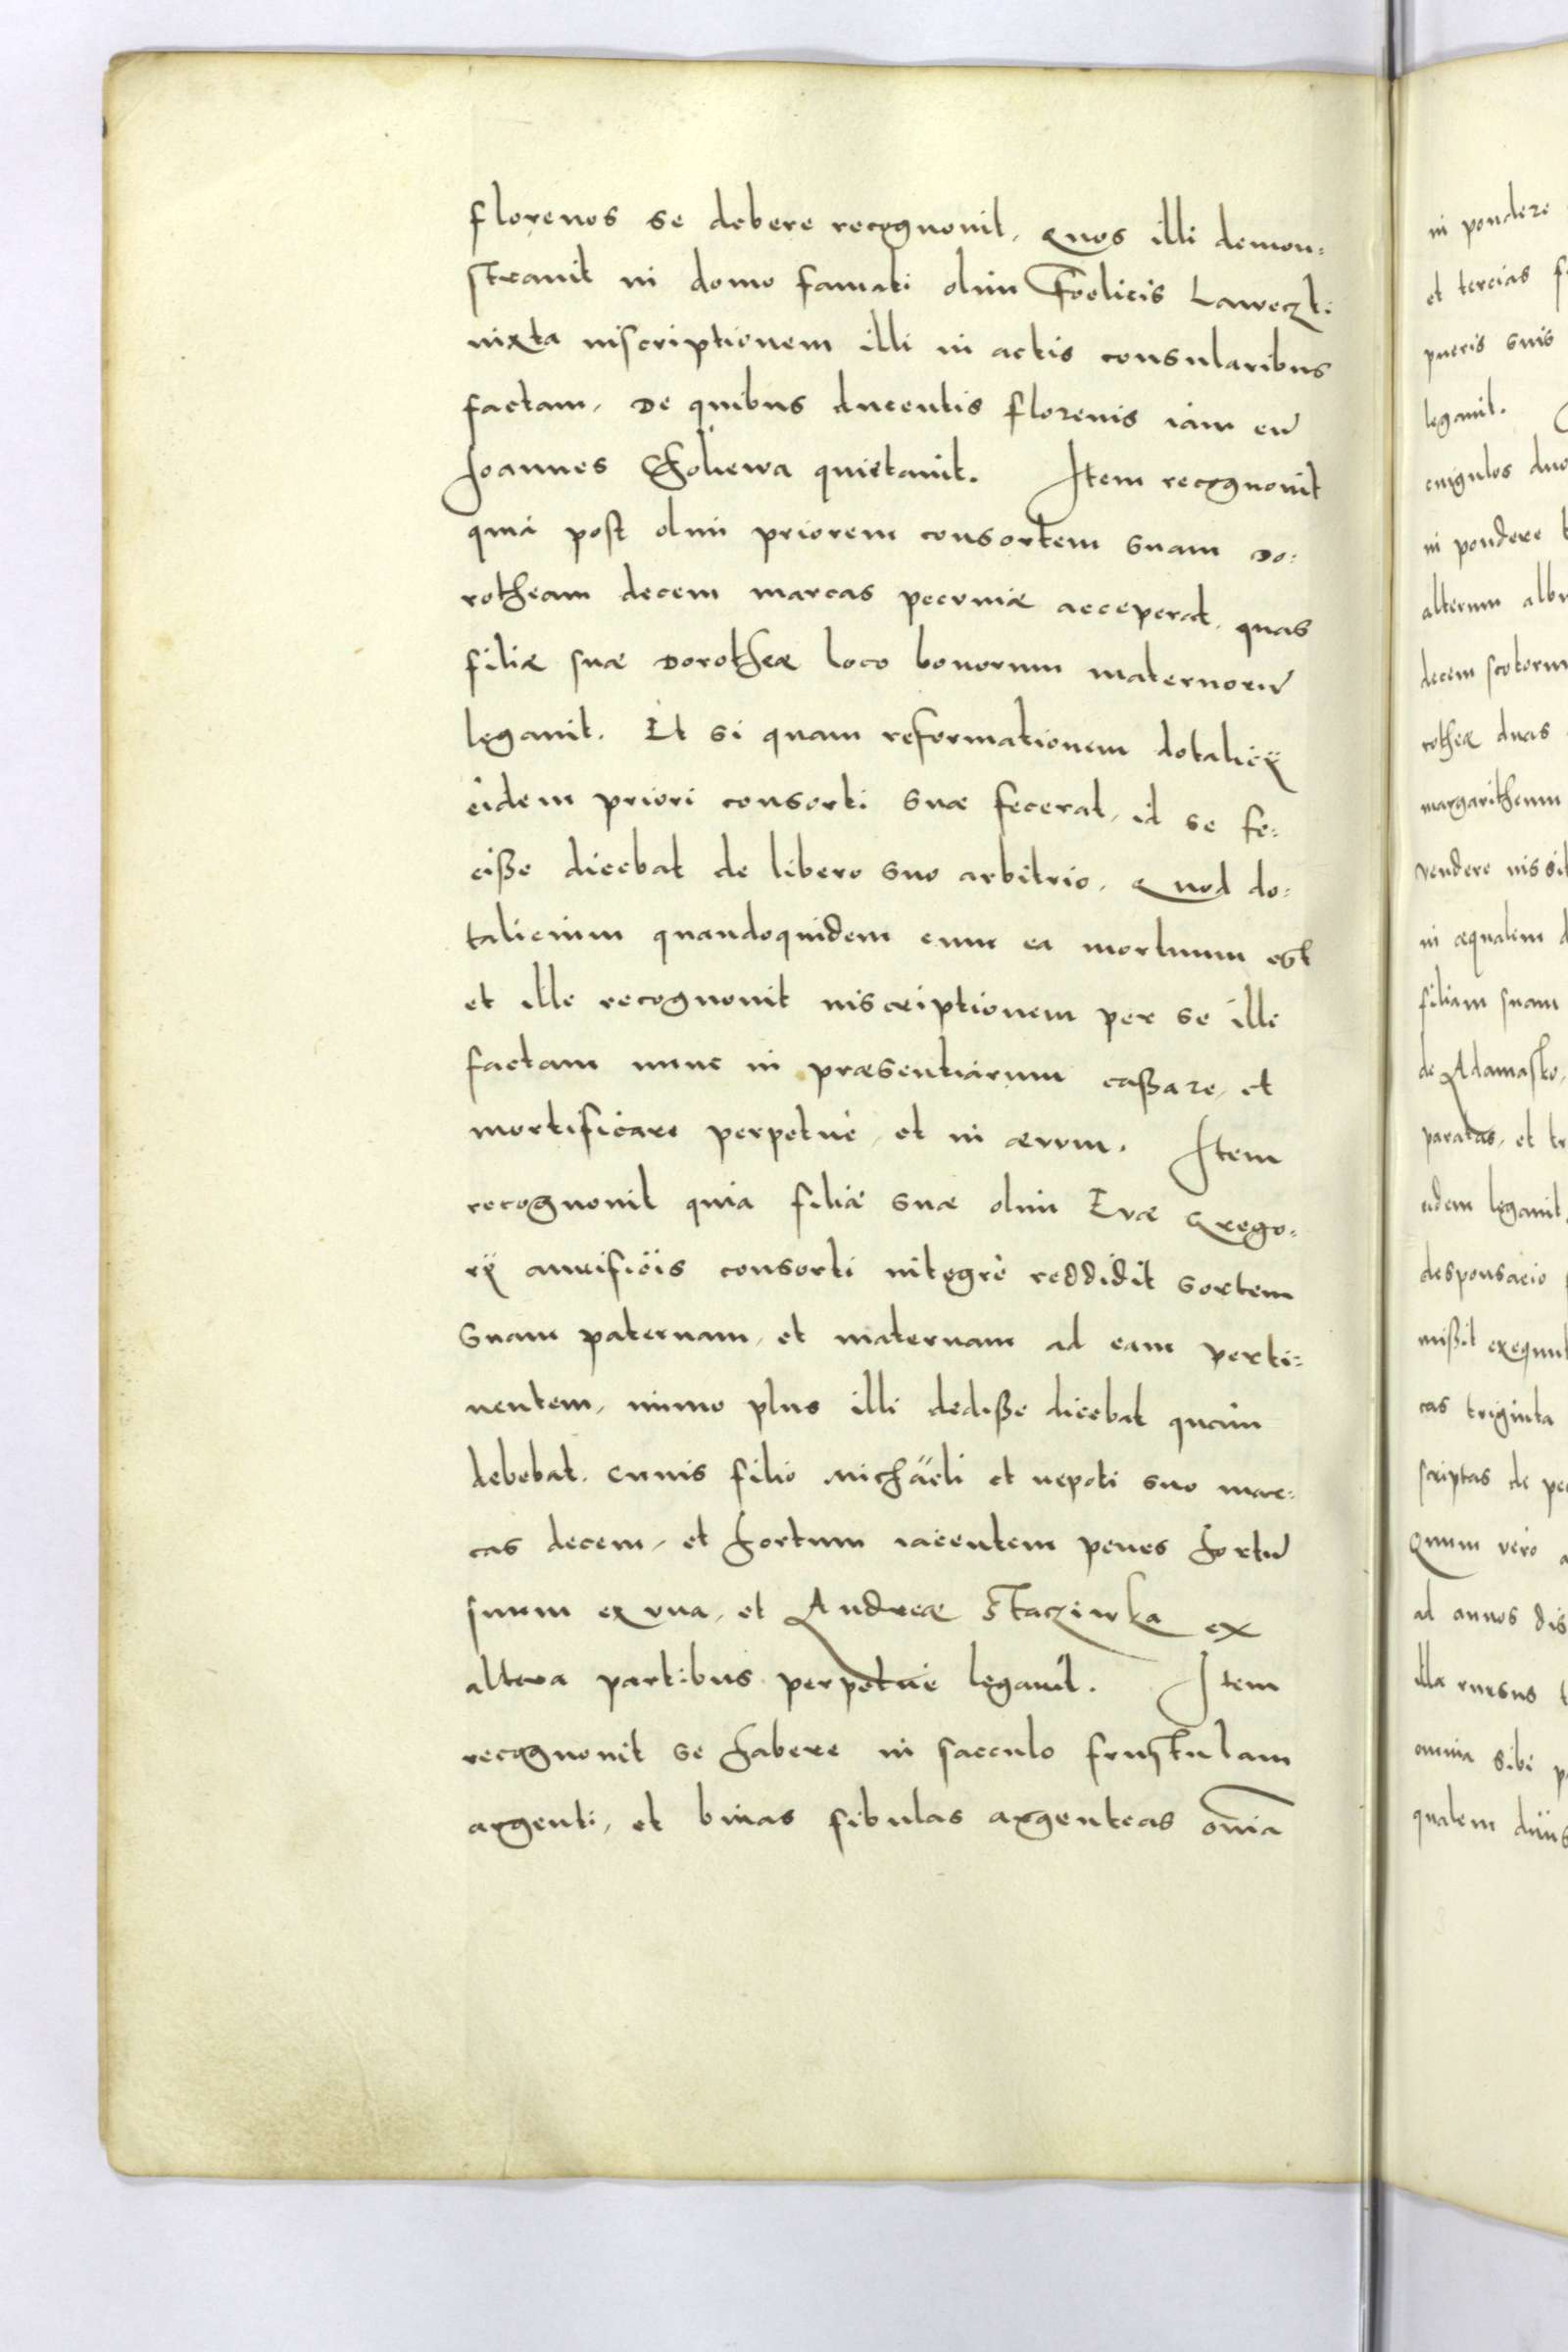 florenos se debere recognouit, quos illi demon=
strauit in domo famati olim Foelicis Laweczki
iuxta inscriptionem illi in actis consularibus
factam, De quibus ducentis florenis iam eũ
Joannes Choliewa quietauit. Item recognouit
quia post olim priorem consortem suam Do=
rotheam decem marcas pecuniæ acceperat, quas
filiæ suæ Dorotheæ loco bonorum maternorũ
legauit. Et si quam reformationem dotalicÿ
eidem priori consorti suæ fecerat, id se fe=
cisse dicebat de libero suo arbitrio, Quod do=
talicium quandoquidem cum ea mortuum est
et ille recognouit inscriptionem per se illi
factam nunc in præsentiarum cassare, et
mortificare perpetuè, et in ævvm. Item
recognouit quia filiæ suæ olim Evæ Grego=
rÿ aurificis consorti integrè reddidit sortem
suam paternam, et maternam ad eam perti=
nentem, immo plus illi dedisse dicebat quàm
debebat, Cuius filio Michaëli et nepoti suo mar=
cas decem, et hortum iacentem penes hortũ
suum ex vna, et Andreæ Stacziwka ex
altera partibus perpetuè legauit. Item
recognouit se habere in sacculo frustulam
argenti, et binas fibulas argenteas om̃ia
in pondere
et tercias
pueris suis
legauit.
cingulos duo
in pondere
alterum albu
decem scotorum
rotheæ duas
margarithenm
vendere iussit
in æqualem
filiam suam
de Adamasko,
paratas, et
eidem legauit,
desponsacio
missit exequut
cas triginta
scriptas de pe
Quum vero
ad annos dis
illa rursus
omnia sibi
qualem